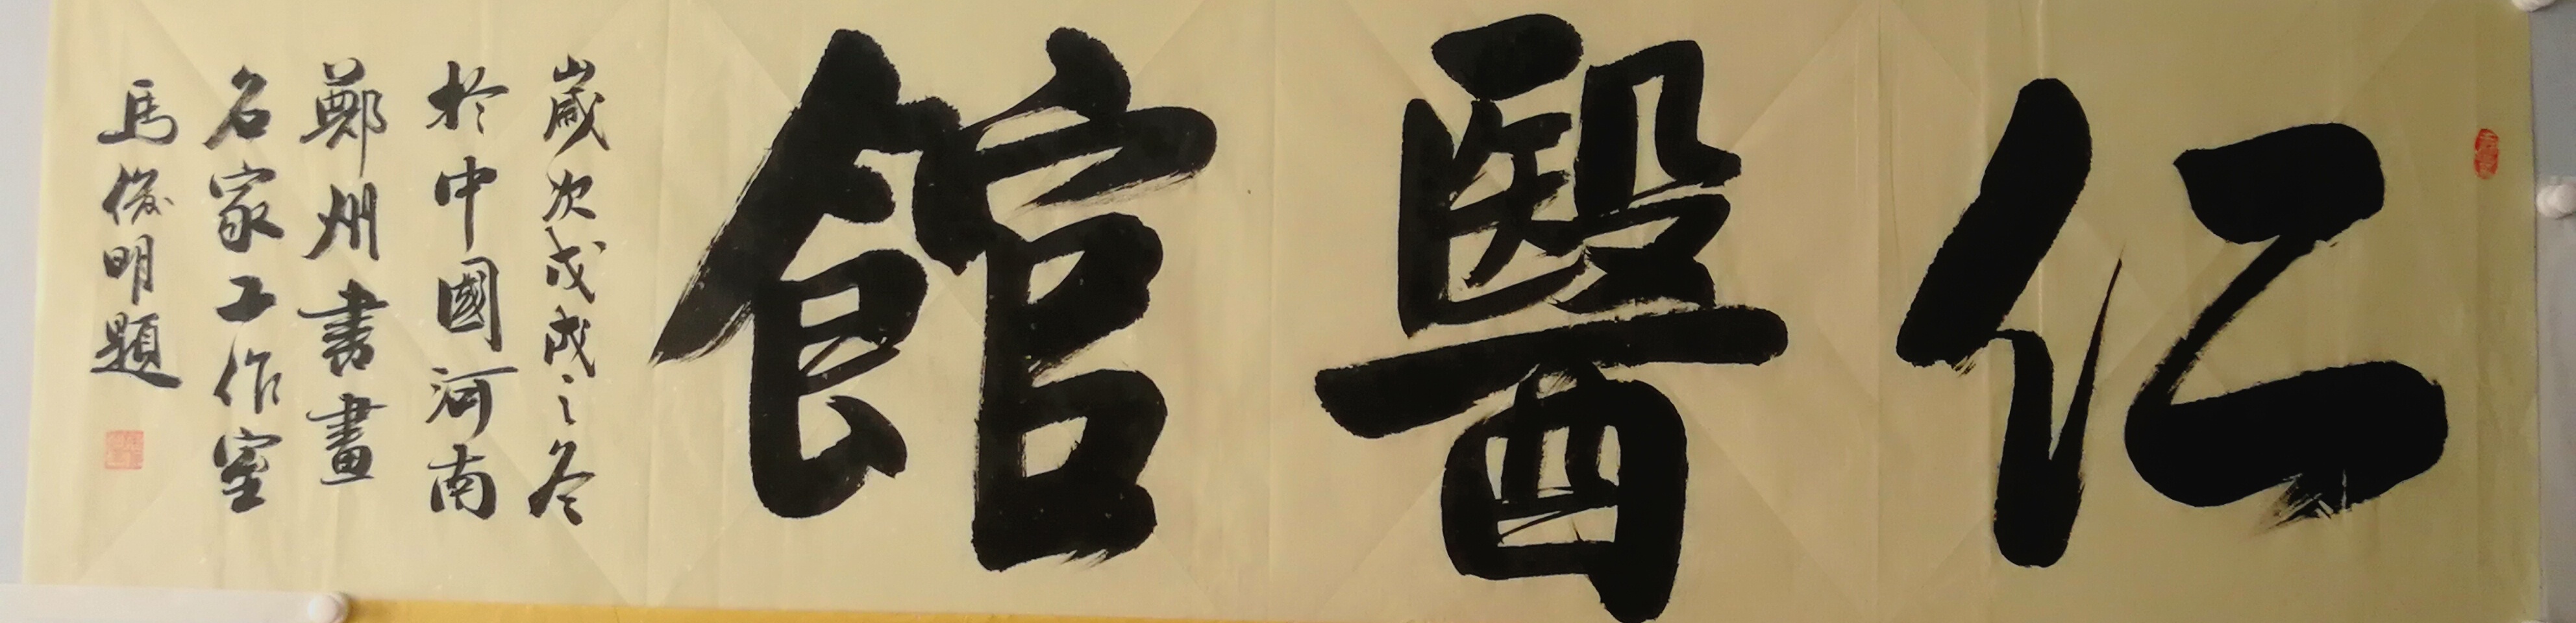 仁醫館
歲次戊戌之冬
於中國河南
鄭州書畫
名家工作室
馬俊明題